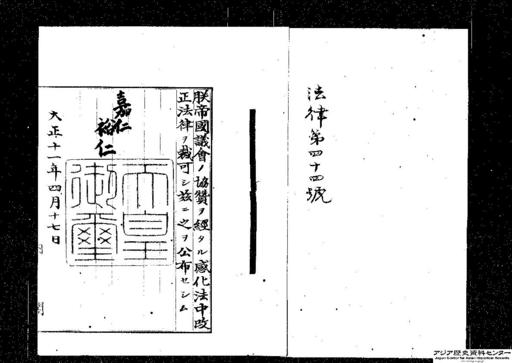 法律第四十四號
朕帝國議會ノ協贊ヲ經タル感化法中改
正法律ヲ裁可シ茲ニ之ヲ公布セシム
嘉仁
裕仁
天皇
御璽
大正十一年四月十七日
アジア歴史資料センター
Japan Center for Asian Historical Records